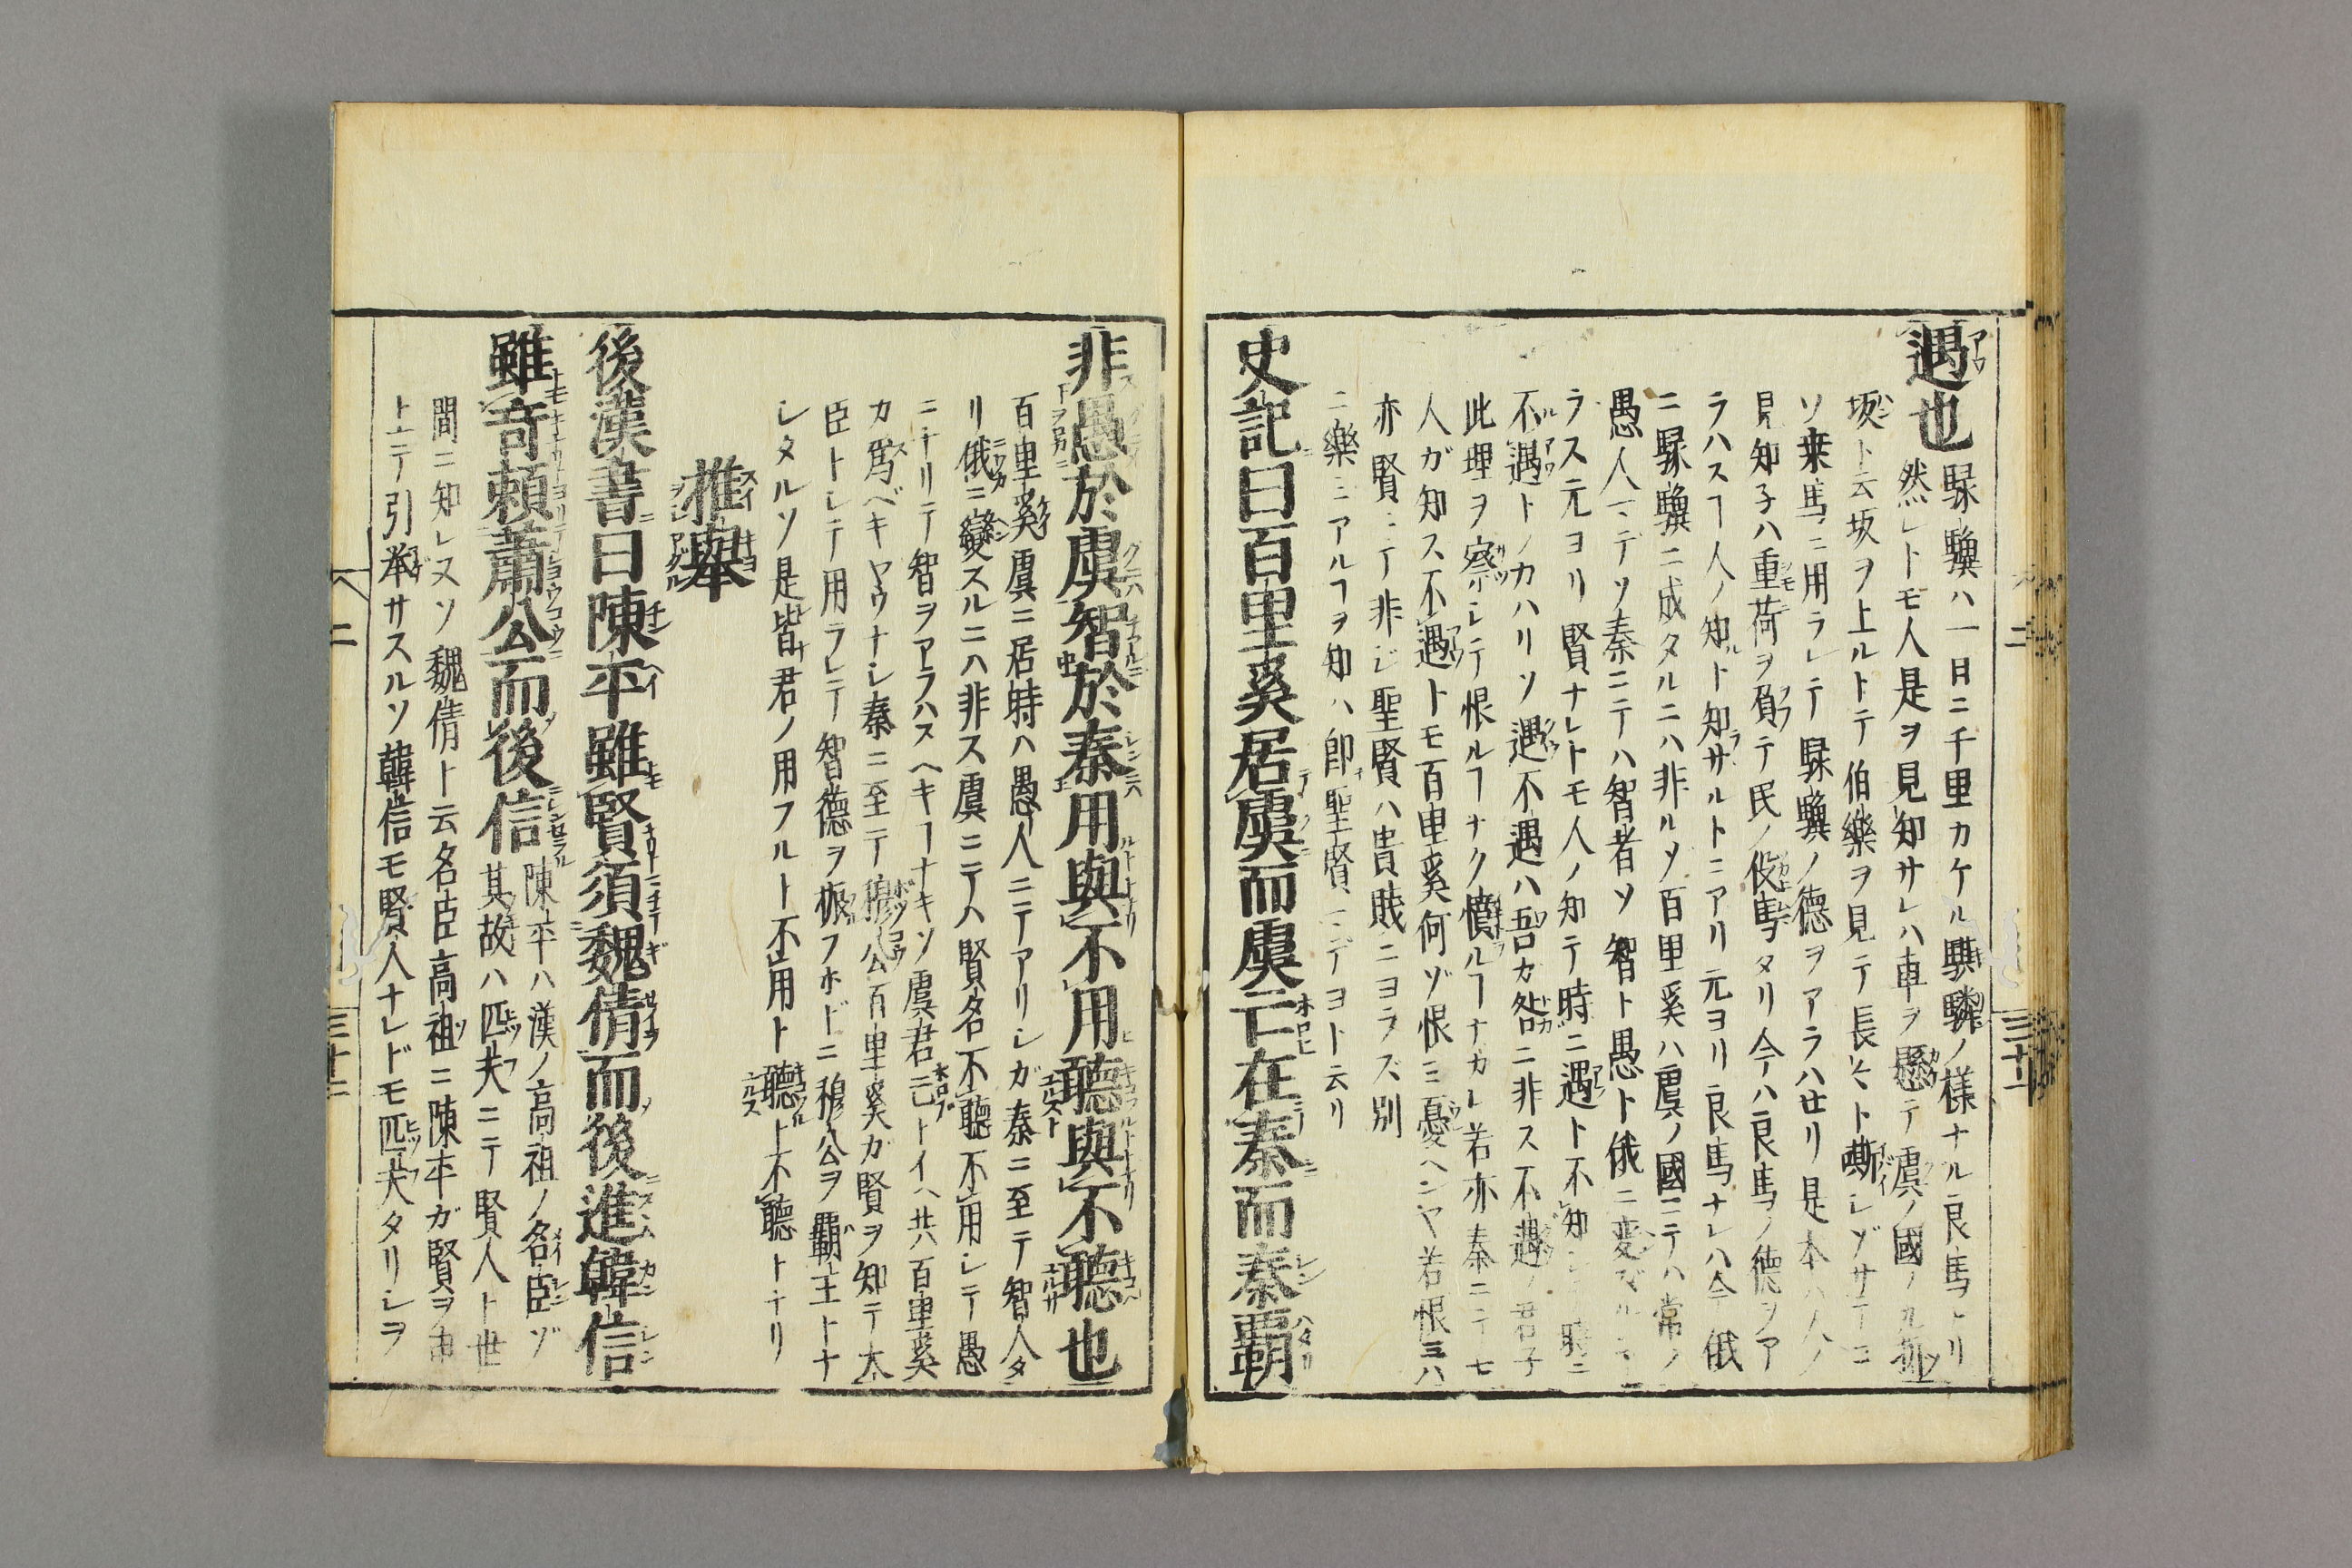 遇也
騄驥ハ一日ニ千里カケル騏驎ノ様ナル良馬ナリ
然レトモ人是ヲ見知サレハ車ヲ懸テ虞ノ國ノ
坂ト云坂ヲ上ルトテ伯樂ヲ見テ長々ト嘶レゾサテコ
ソ乗馬ニ用ラレテ騄驥ノ德ヲアラハせリ是本ハ人ノ
見知子ハ重荷ヲ負テ民ノ役馬タリ今ハ良馬ノ德ヲア
ラハスヿ人ノ知ト知サルトニアリ元ヨリ良馬ナレハ今俄
ニ騄驥ニ成タルニハ非ルソ百里奚ハ虞ノ國ニテハ常ノ
愚人マデソ秦ニテハ智者ソ智ト愚ト俄ニ変
ラス元ヨリ賢ナレトモ人ノ知テ時ニ遇ト不知
不遇トノカハリソ遇不遇ハ吾カ咎ニ非ス不遇ノ君子
此理ヲ察レテ恨ルヿナク憤ルヿナカレ若亦秦ニテ七
人ガ知ス不遇トモ百里奚何ゾ恨ミ憂ヘンヤ若恨ミハ
亦賢ニテ非ジ聖賢ハ貴賎ニヨラズ別
ニ樂ミアルヿヲ知ハ即聖賢ニデヨト云リ
史記曰百里奚居虞而虞亡在秦而秦覇
非愚於虞智於秦用與不用聽與不聽也
百里奚虞ニ居時ハ愚人ニテアリシガ秦ニ至テ智人タ
リ俄ニ變スルニハ非ス虞ニテハ賢名不聽不用レテ愚
ニナリテ智ヲアラハスヘキヿナキソ虞君亡トイヘ共百里奚
カ爲ベキヤウナシ秦ニ至テ穆公百里奚ガ賢ヲ知テ大
臣トレテ用ラレテ智德ヲ振フホドニ穆公ヲ覇王トナ
レタルソ是皆君ノ用フルト不用ト聽ト不聽トナリ
推擧
後漢書曰陳平雖賢須魏倩而後進韓信
雖奇頼蕭公而後信
陳平ハ漢ノ高祖ノ名臣ゾ
其故ハ匹夫ニテ賢人ト世
間ニ知レヌソ魏倩ト云名臣高祖ニ陳平ガ賢ヲ申
上テ引擧サスルソ韓信モ賢人ナレドモ匹夫タリシヲ